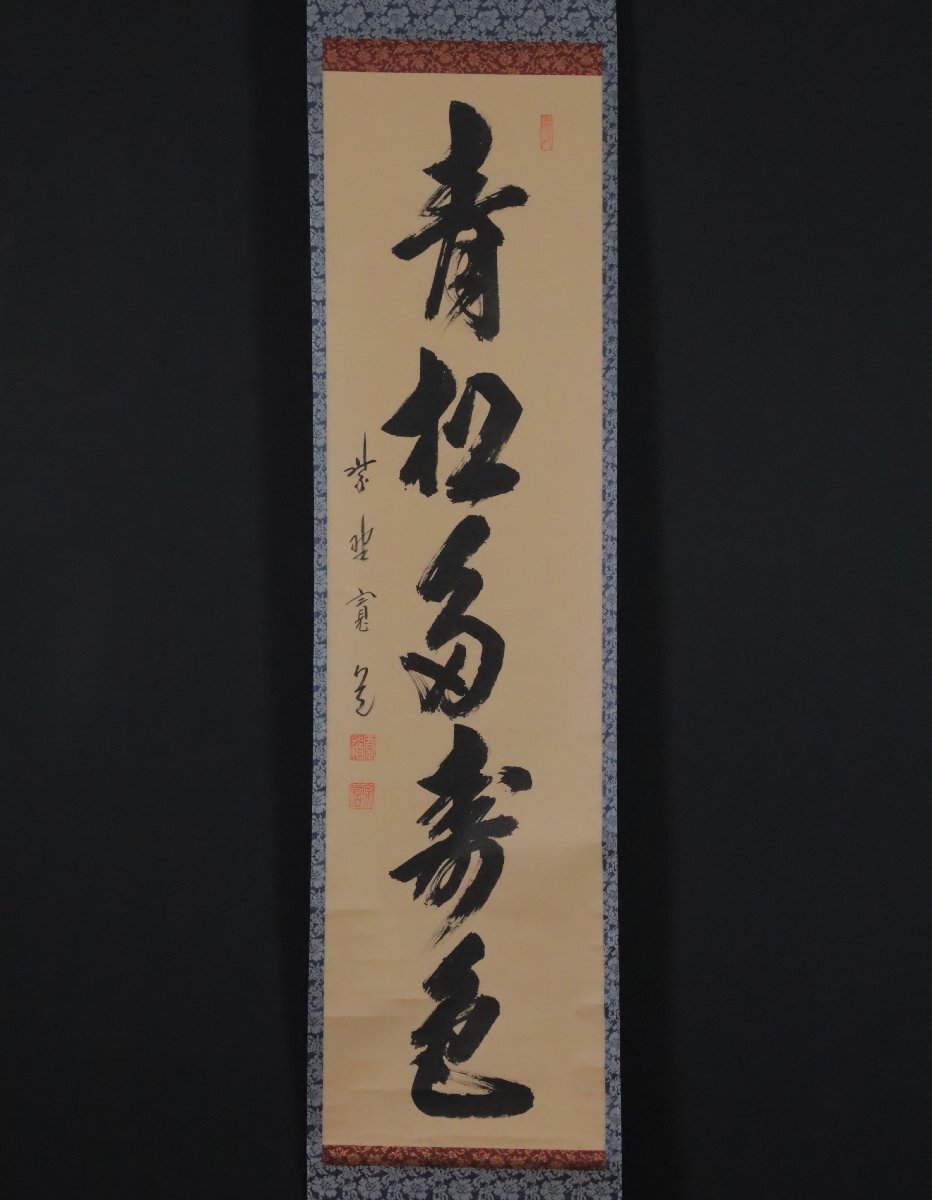 青松多寿色
紫野寛道